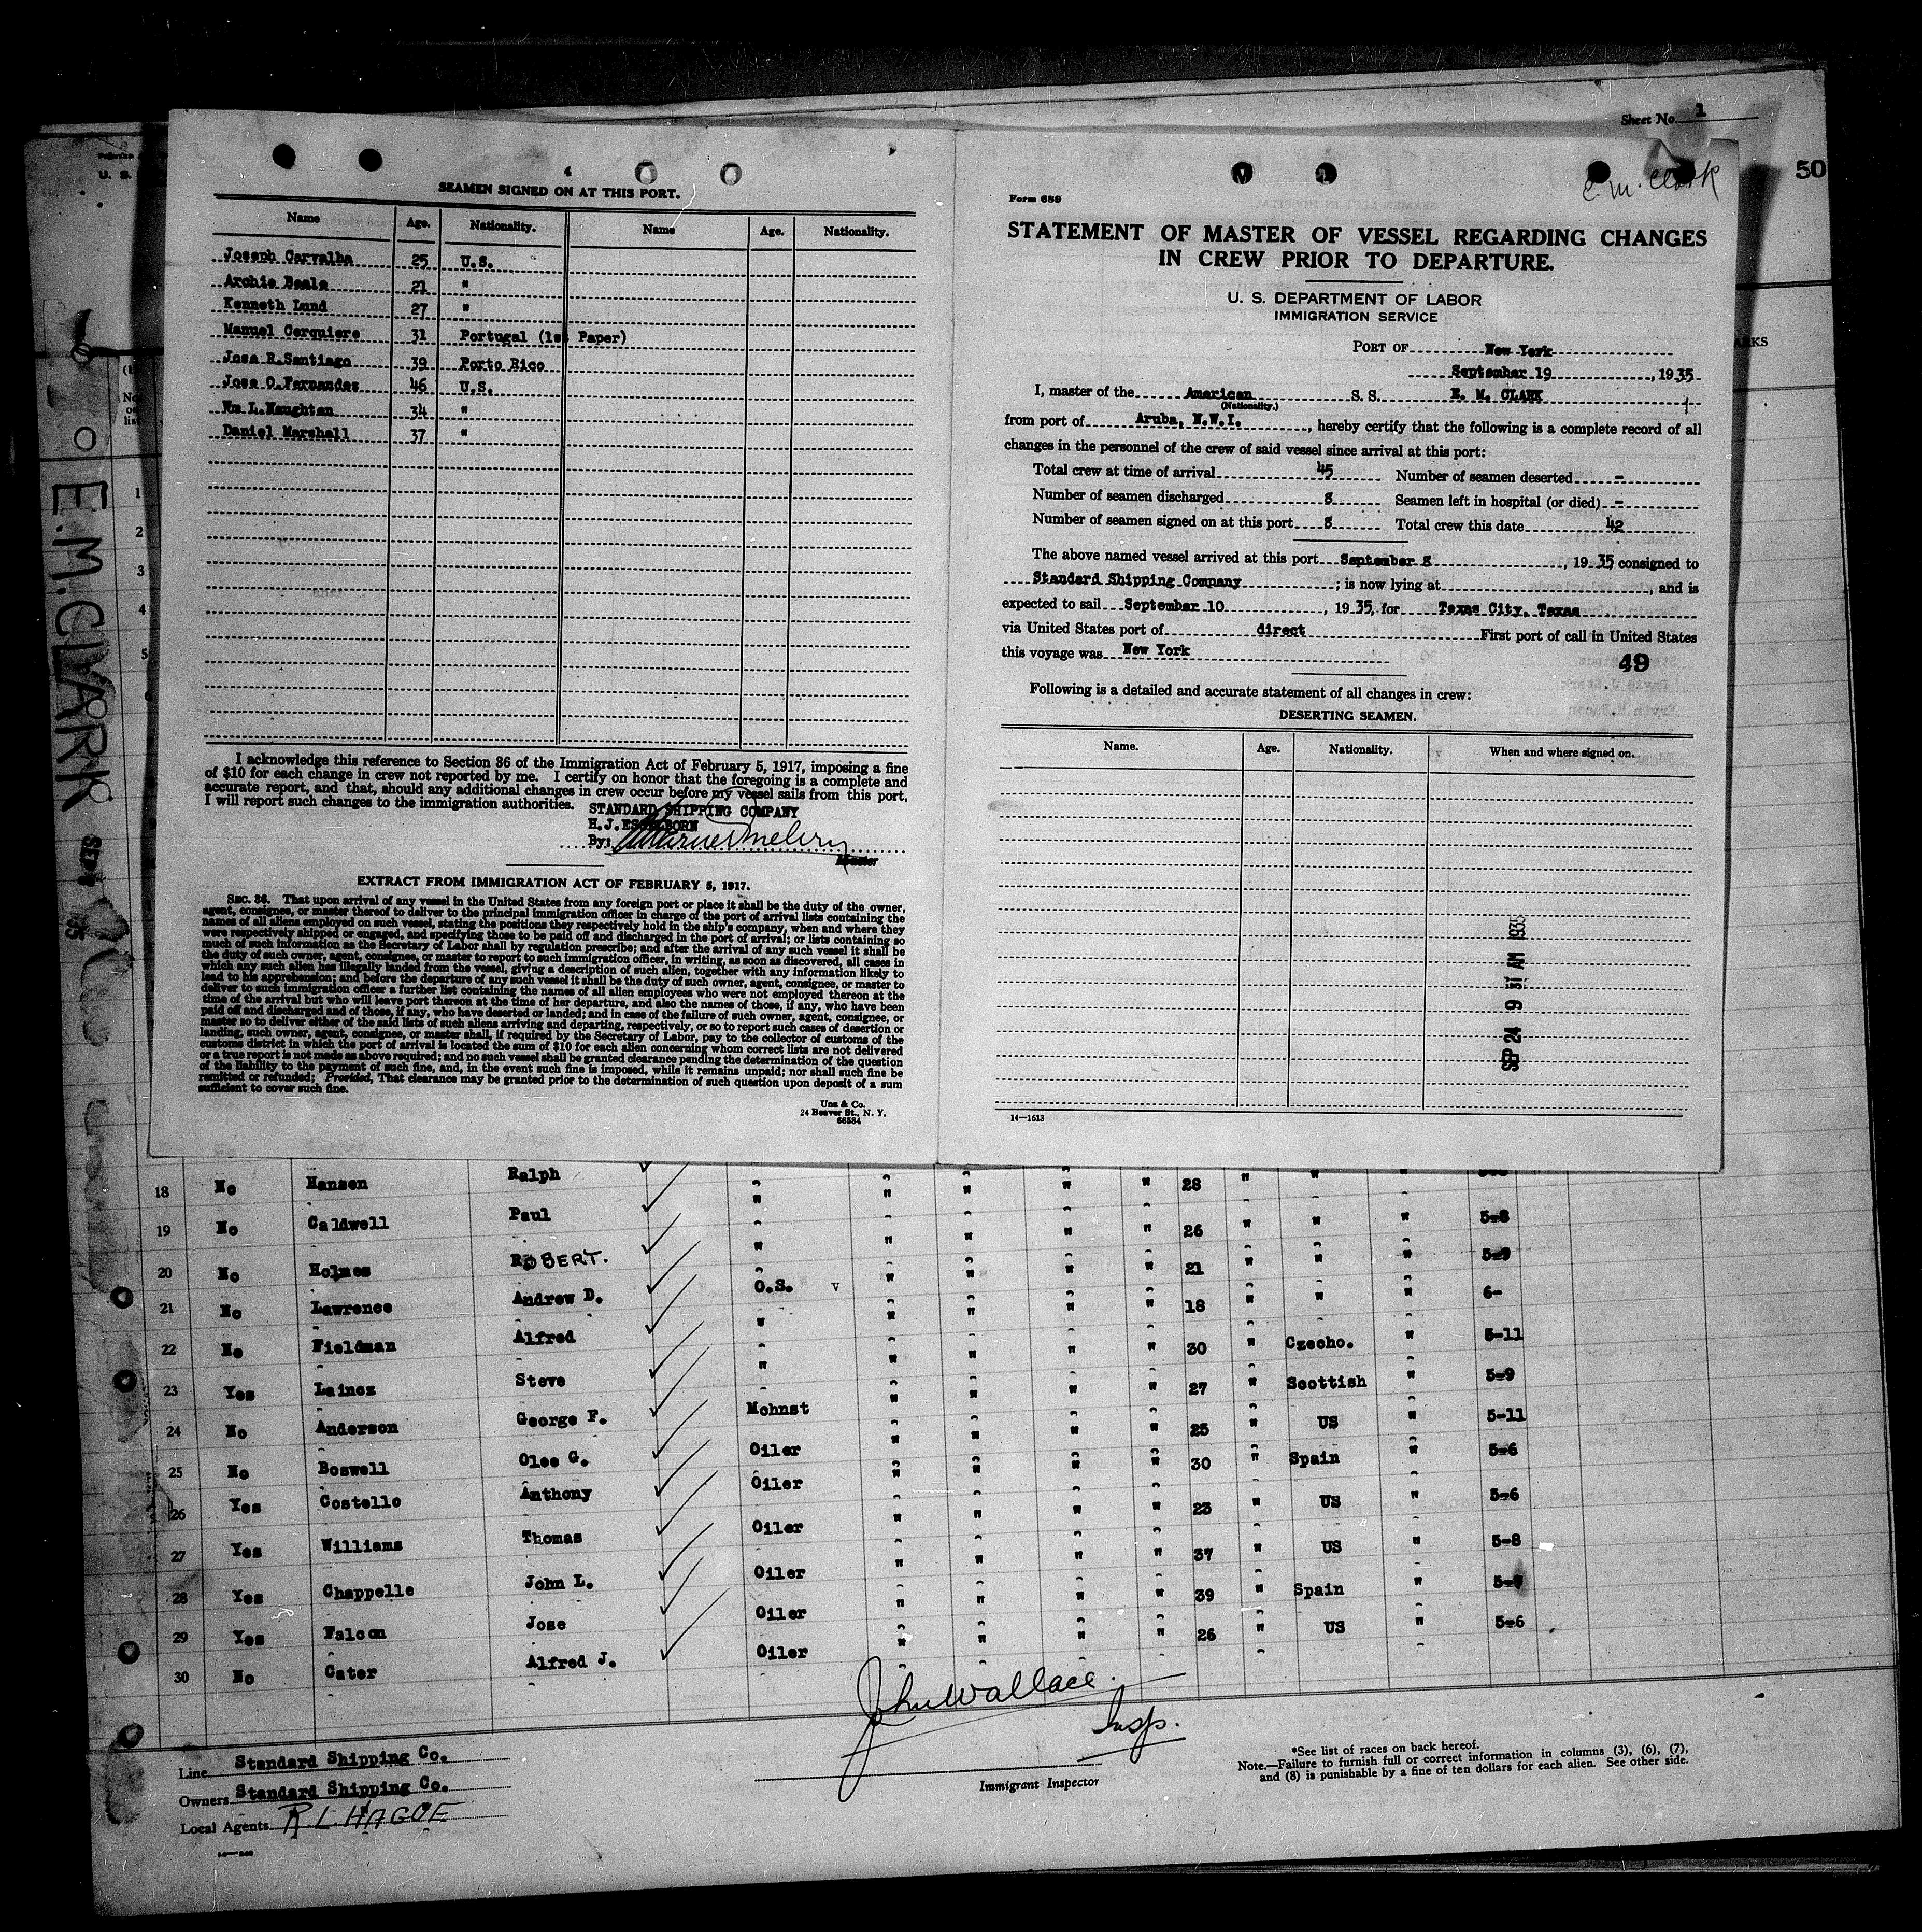 Sheet No. 1
50
E. M. Clark
4
SEAMEN SIGNED ON AT THIS PORT.
Name Age. Nationality. Name Age. Nationality.
Joseph Carvalha 25 U.S.
Archie Beale 21 "
Kenneth Lund 27 "
Manuel Cerquiere 31 Portugal (1st Paper)
Jose R.Santiago 39 Porto Rico
Jose O.Fernandez 46 U.S.
Wm L.Naughton 34 "
Daniel Marshall 37 "
I acknowledge this reference to Section 36 of the Immigration Act of February 5, 1917, imposing a fine
of $10 for each change in crew not reported by me. I certify on honor that the foregoing is a complete and
accurate report, and that, should any additional changes in crew occur before my vessel sails from this port,
I will report such changes to the immigration authorities.
STANDARD SHIPPING COMPANY
H.J.ESSELBORN
By:
Master
EXTRACT FROM IMMIGRATION ACT OF FEBRUARY 5, 1917.
SEC. 36. That upon arrival of any vessel in the United States from any foreign port or place it shall be the duty of the owner,
agent, consignee, or master thereof to deliver to the principal immigration officer in charge of the port of arrival lists containing the
names of all aliens employed on such vessel, stating the positions they respectively hold in the ship's company, when and where they
were respectively shipped or engaged, and specifying those to be paid off and discharged in the port of arrival; or lists containing so
much of such information as the Secretary of Labor shall by regulation prescribe; and after the arrival of any such vessel it shall be
the duty of such owner, agent, consignee, or master to report to such immigration officer, in writing, as soon as discovered, all cases in
which any such alien has illegally landed from the vessel, giving a description of such alien, together with any information likely to
lead to his apprehension; and before the departure of any such vessel it shall be the duty of such owner, agent, consignee, or master to
deliver to such immigration officer a further list containing the names of all alien employees who were not employed thereon at the
time of the arrival but who will leave port thereon at the time of her departure, and also the names of those, if any, who have been
paid off and discharged and of those, if any, who have deserted or landed; and in case of the failure of such owner, agent, consignee, or
master so to deliver either of the said lists of such aliens arriving and departing, respectively, or so to report such cases of desertion or
landing, such owner, agent, consignee, or master shall, if required by the Secretary of Labor, pay to the collector of customs of the
customs district in which the port of arrival is located the sum of $10 for each alien concerning whom correct lists are not delivered
or a true report is not made as above required; and no such vessel shall be granted clearance pending the determination of the question
of the liability to the payment of such fine, and, in the event such fine is imposed, while it remains unpaid; nor shall such fine be
remitted or refunded; Provided, That clearance may be granted prior to the determination of such question upon deposit of a sum
sufficient to cover such fine.
Unz & Co.
24 Beaver St., N. Y.
66584
Form 689
STATEMENT OF MASTER OF VESSEL REGARDING CHANGES
IN CREW PRIOR TO DEPARTURE.
U. S. DEPARTMENT OF LABOR
IMMIGRATION SERVICE
PORT OF New York
September 19, 1935
I, master of the American S. S. E. M. CLARK
(Nationality.)
from port of Aruba, N.W.I., hereby certify that the following is a complete record of all
changes in the personnel of the crew of said vessel since arrival at this port:
Total crew at time of arrival 45 Number of seamen deserted -
Number of seamen discharged 8 Seamen left in hospital (or died) -
Number of seamen signed on at this port 8 Total crew this date 42
The above named vessel arrived at this port September 8, 1935 consigned to
Standard Shipping Company; is now lying at , and is
expected to sail September 10, 1935, for Texas City, Texas
via United States port of direct First port of call in United States
this voyage was New York
49
Following is a detailed and accurate statement of all changes in crew:
DESERTING SEAMEN.
Name. Age. Nationality. When and where signed on.
SEP 24 9 AM 1935
14—1613
E.M.CLARK
U. S.
1
2
3
4
5
18 No Hansen Ralph " " " " " 28 " "
19 No Caldwell Paul " " " " " 26 " " " 5-8
20 No Holmes ROBERT. " " " " " 21 " " " 5-9
21 No Lawrence Andrew D. O.S. v " " " " 18 " " " 6-
22 No Fieldman Alfred " " " " " 30 " Czecho. " 5-11
23 Yes Lainez Steve " " " " " 27 " Scottish " 5-9
24 No Anderson George F. Mchnst " " " " 25 " US " 5-11
25 No Boswell Olee G. Oiler " " " " 30 " Spain " 5-6
26 Yes Costello Anthony Oiler " " " " 23 " US " 5-6
27 Yes Williams Thomas Oiler " " " " 37 " US " 5-8
28 Yes Chappelle John L. Oiler " " " " 39 " Spain "
29 Yes Falcon Jose Oiler " " " " 26 " US " 5-6
30 No Cater Alfred J. Oiler
John Wallace
Insp.
Immigrant Inspector
Line Standard Shipping Co.
Owners Standard Shipping Co.
Local Agents R.L. HAGUE
*See list of races on back hereof.
Note.—Failure to furnish full or correct information in columns (3), (6), (7),
and (8) is punishable by a fine of ten dollars for each alien. See other side.